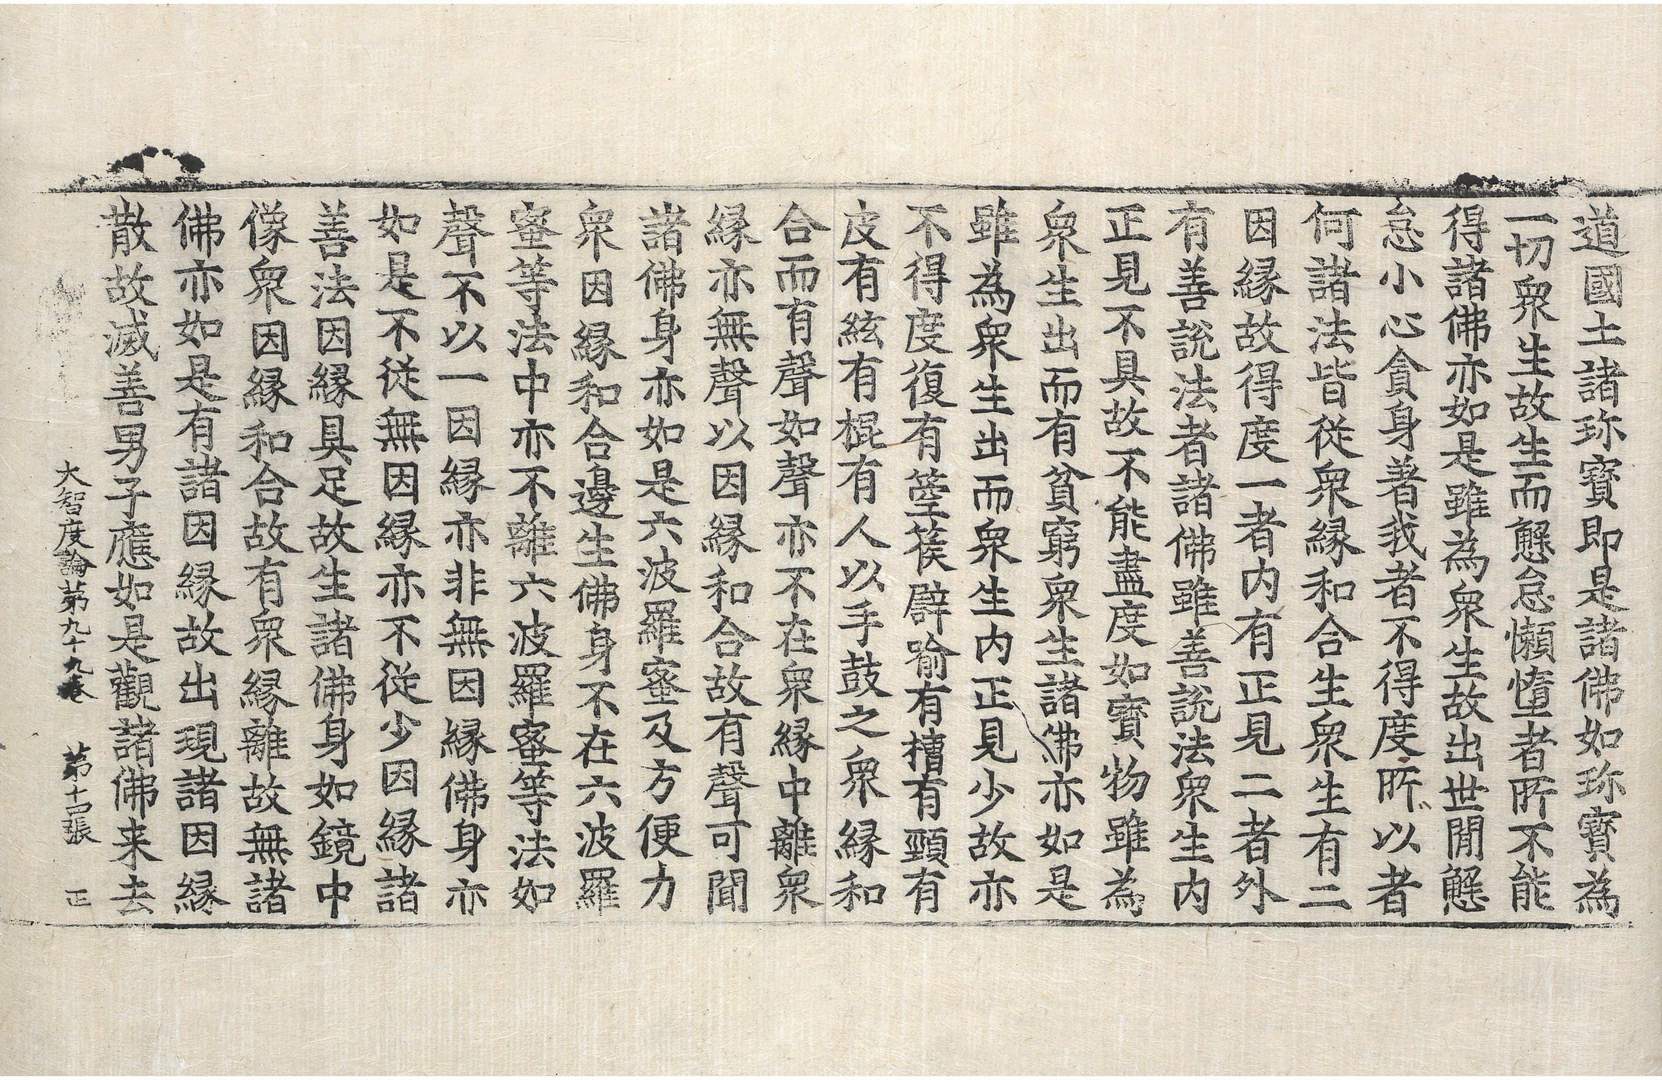 道國土諸珎寶即是諸佛如珎寶為
一切衆生故生而懈怠懶憜者所不能
得諸佛亦如是雖為衆生故出世閒懈
怠小心貪身著我者不得度所以者
何諸法皆從衆縁和合生衆生有二
因縁故得度一者內有正見二者外
有善說法者諸佛雖善說法衆生內
正見不具故不能盡度如寶物雖為
衆生出而有貧窮衆生諸佛亦如是
雖為衆生出而衆生內正見少故亦
不得度復有箜篌譬喻有槽有頸有
皮有絃有棍有人以手鼓之衆縁和
合而有聲如聲亦不在衆縁中離衆
縁亦無聲以因縁和合故有聲可聞
諸佛身亦如是六波羅蜜及方便力
衆因縁和合邊生佛身不在六波羅
蜜等法中亦不離六波羅蜜等法如
聲不以一因縁亦非無因縁佛身亦
如是不從無因縁亦不從少因縁諸
善法因縁具足故生諸佛身如鏡中
像衆因縁和合故有衆縁離故無諸
佛亦如是有諸因縁故出現諸因縁
散故滅善男子應如是觀諸佛来去
大智度論第九十九卷 第十四張 正